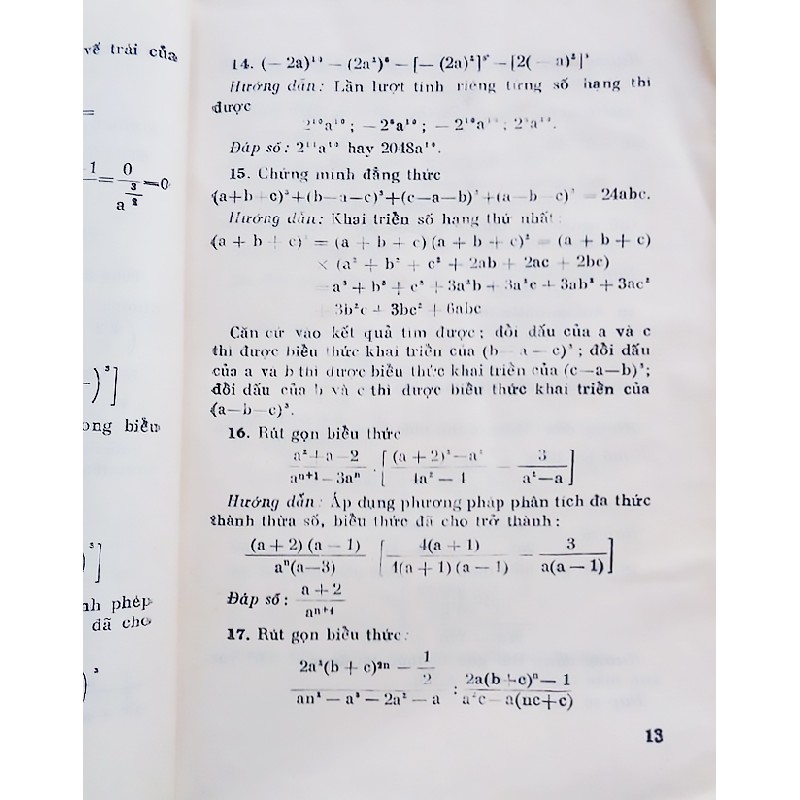 vế trái của
=
1 = 0/a^(3/2) = 0
)³]
ong biểu
³]
nh phép
đã cho
)³
14. (— 2a)¹⁰ — (2a²)⁵ — [— (2a)²]⁵ — [2(— a)²]⁵
Hướng dẫn: Lần lượt tính riêng từng số hạng thì
được
2¹⁰a¹⁰ ; — 2⁵a¹⁰ ; — 2¹⁰a¹⁰ ; 2⁵a¹⁰.
Đáp số : 2¹¹a¹⁰ hay 2048a¹⁰.
15. Chứng minh đẳng thức
(a+b+c)³+(b—a—c)³+(c—a—b)³+(a—b—c)³ = 24abc.
Hướng dẫn: Khai triển số hạng thứ nhất:
(a + b + c)³ = (a + b + c) (a + b + c)² = (a + b + c)
× (a² + b² + c² + 2ab + 2ac + 2bc)
= a³ + b³ + c³ + 3a²b + 3a²c + 3ab² + 3ac²
+ 3b²c + 3bc² + 6abc
Căn cứ vào kết quả tìm được ; đổi dấu của a và c
thì được biểu thức khai triển của (b — a — c)³ ; đổi dấu
của a và b thì được biểu thức khai triển của (c—a—b)³;
đổi dấu của b và c thì được biểu thức khai triển của
(a—b—c)³.
16. Rút gọn biểu thức
(a²+a—2)/(aⁿ⁺¹—3aⁿ) · [((a + 2)²—a²)/(4a² — 4) — 3/(a²—a)]
Hướng dẫn : Áp dụng phương pháp phân tích đa thức
thành thừa số, biểu thức đã cho trở thành :
((a + 2) (a — 1))/(aⁿ(a—3)) [(4(a + 1))/(4(a + 1) (a — 1)) — 3/(a(a — 1))]
Đáp số : (a + 2)/(aⁿ⁺¹)
17. Rút gọn biểu thức:
(2a²(b + c)²ⁿ — 1/2)/(an² — a³ — 2a² — a) : (2a(b+c)ⁿ — 1)/(a²c — a(nc+c))
13